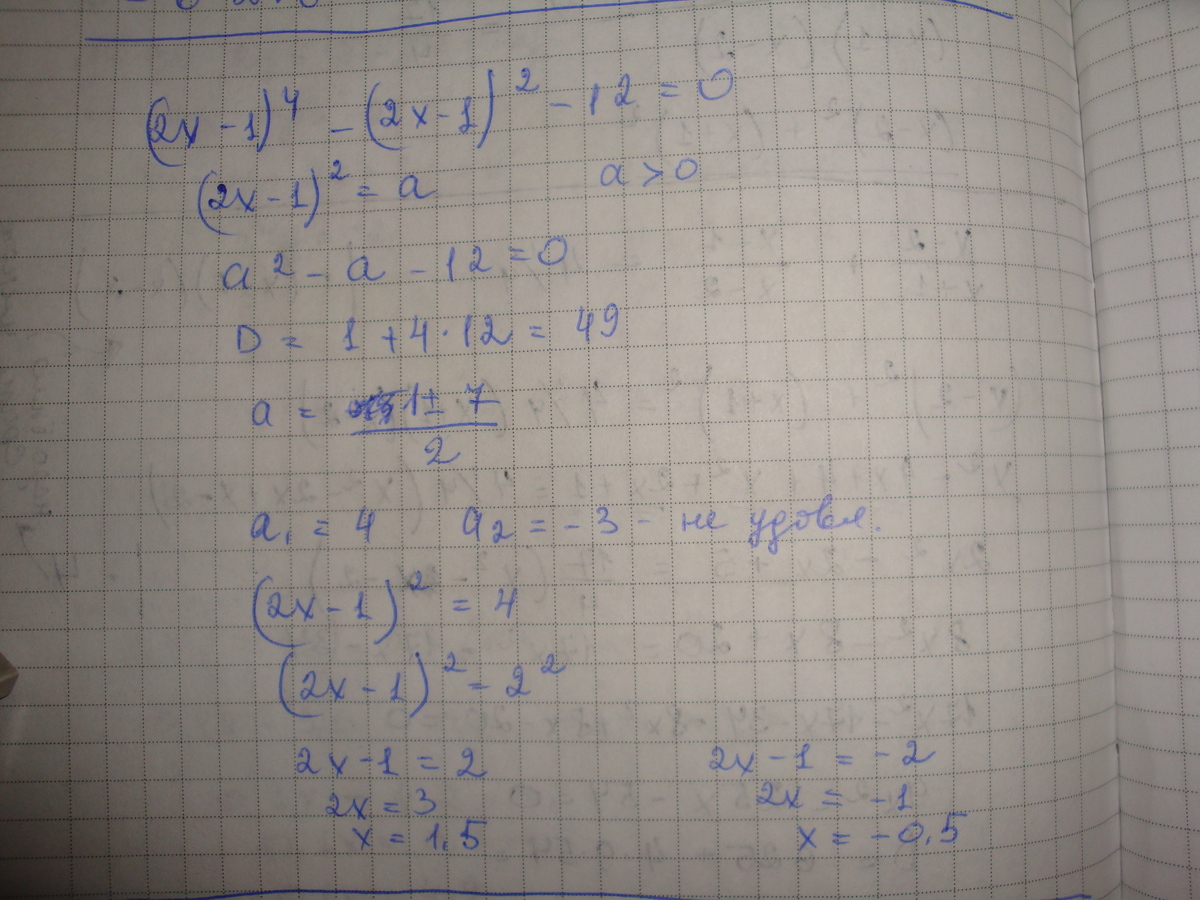 (2x-1)^4 - (2x-1)^2 - 12 = 0
(2x-1)^2 = a a > 0
a^2 - a - 12 = 0
D = 1 + 4·12 = 49
a = (1 ± 7)/2
a₁ = 4 a₂ = -3 - не удовл.
(2x-1)^2 = 4
(2x-1)^2 = 2^2
2x-1 = 2 2x-1 = -2
2x = 3 2x = -1
x = 1.5 x = -0.5